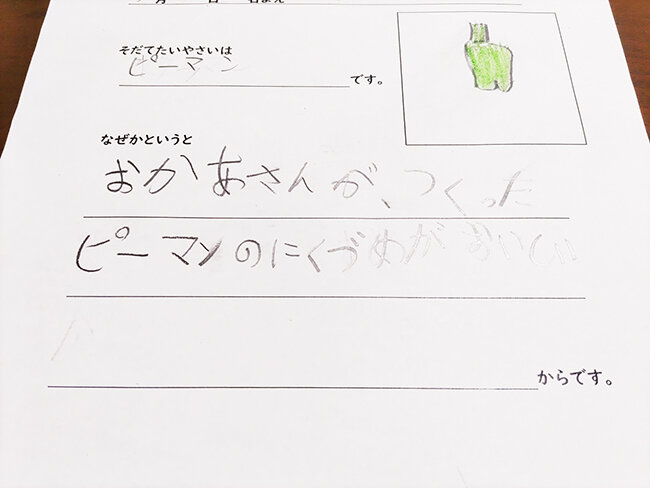 月 日 名まえ
そだてたいやさいは
ピーマン です。
なぜかというと
おかあさんが、つくった
ピーマンのにくづめがおいしい
からです。